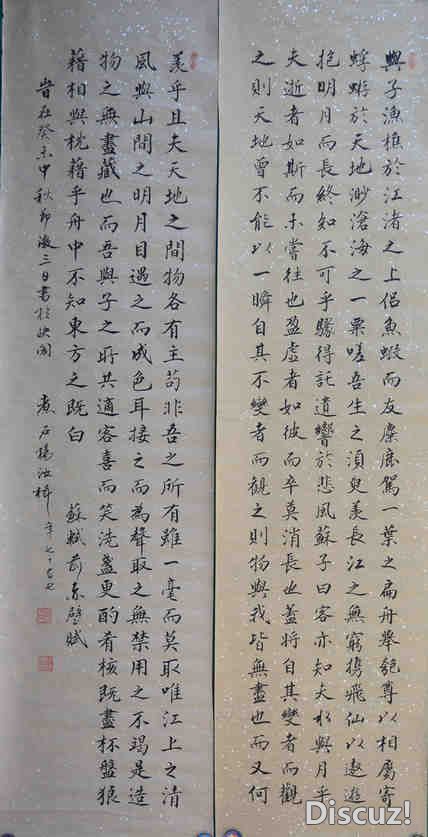 與子漁樵於江渚之上侶魚蝦而友麋鹿駕一葉之扁舟舉匏尊以相屬寄
蜉蝣於天地渺滄海之一粟嗟吾生之須臾羨長江之無窮攜飛仙以遨遊
抱明月而長終知不可乎驟得託遺響於悲風蘇子曰客亦知夫水與月乎
夫逝者如斯而未嘗往也盈虛者如彼而卒莫消長也蓋將自其變者而觀
之則天地曾不能以一瞬自其不變者而觀之則物與我皆無盡也而又何
羨乎且夫天地之間物各有主苟非吾之所有雖一毫而莫取唯江上之清
風與山間之明月目遇之而成色耳接之而為聲取之無禁用之不竭是造
物之無盡藏也而吾與子之所共適客喜而笑洗盞更酌肴核既盡杯盤狼
藉相與枕藉乎舟中不知東方之既白 蘇軾前赤壁賦
癸未中秋節後三日書於 煮石楊汝
Discuz!